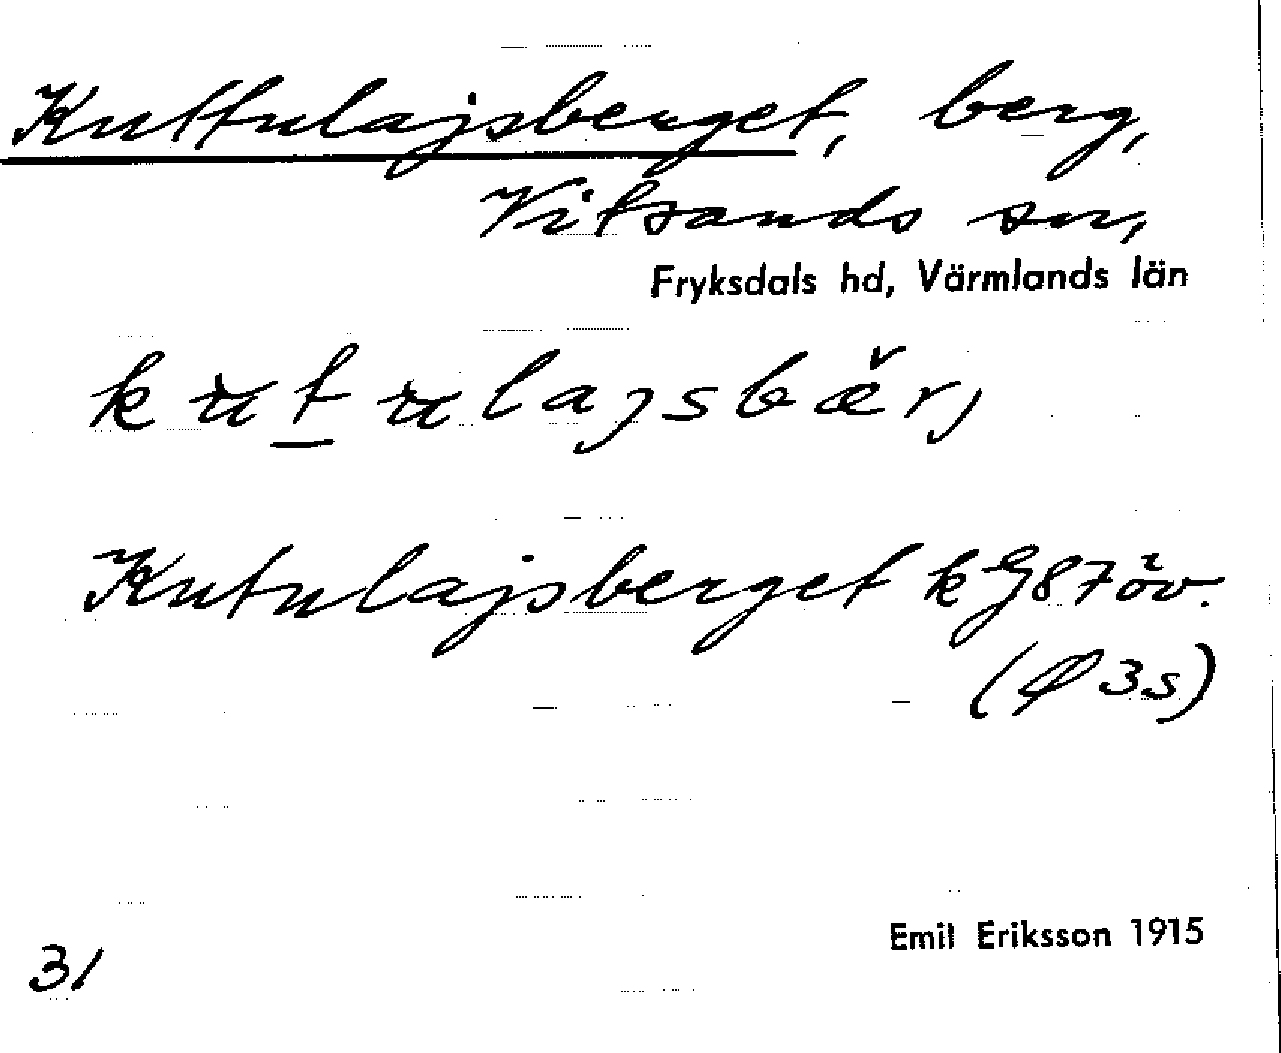 Kuttulajsberget, berg,
Vitsands sn,
Fryksdals hd, Värmlands län
kutulajsbærj
Kutulajsberget kG87öv.
(Ø 3s)
Emil Eriksson 1915
31